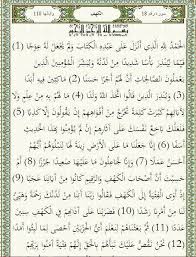 سورة رقم 18
الكهف
وآياتها 110
بِسْمِ اللَّهِ الرَّحْمَنِ الرَّحِيمِ
الْحَمْدُ لِلَّهِ الَّذِي أَنْزَلَ عَلَى عَبْدِهِ الْكِتَابَ وَلَمْ يَجْعَلْ لَهُ عِوَجًا (1)
قَيِّمًا لِيُنْذِرَ بَأْسًا شَدِيدًا مِنْ لَدُنْهُ وَيُبَشِّرَ الْمُؤْمِنِينَ الَّذِينَ
يَعْمَلُونَ الصَّالِحَاتِ أَنَّ لَهُمْ أَجْرًا حَسَنًا (2) مَاكِثِينَ فِيهِ أَبَدًا (3)
وَيُنْذِرَ الَّذِينَ قَالُوا اتَّخَذَ اللَّهُ وَلَدًا (4) مَا لَهُمْ بِهِ مِنْ عِلْمٍ وَلَا لِآبَائِهِمْ
كَبُرَتْ كَلِمَةً تَخْرُجُ مِنْ أَفْوَاهِهِمْ إِنْ يَقُولُونَ إِلَّا كَذِبًا (5)
فَلَعَلَّكَ بَاخِعٌ نَفْسَكَ عَلَى آثَارِهِمْ إِنْ لَمْ يُؤْمِنُوا بِهَذَا الْحَدِيثِ
أَسَفًا (6) إِنَّا جَعَلْنَا مَا عَلَى الْأَرْضِ زِينَةً لَهَا لِنَبْلُوَهُمْ أَيُّهُمْ أَحْسَنُ
عَمَلًا (7) وَإِنَّا لَجَاعِلُونَ مَا عَلَيْهَا صَعِيدًا جُرُزًا (8) أَمْ حَسِبْتَ
أَنَّ أَصْحَابَ الْكَهْفِ وَالرَّقِيمِ كَانُوا مِنْ آيَاتِنَا عَجَبًا (9) إِذْ
أَوَى الْفِتْيَةُ إِلَى الْكَهْفِ فَقَالُوا رَبَّنَا آتِنَا مِنْ لَدُنْكَ رَحْمَةً وَهَيِّئْ
لَنَا مِنْ أَمْرِنَا رَشَدًا (10) فَضَرَبْنَا عَلَى آذَانِهِمْ فِي الْكَهْفِ سِنِينَ
عَدَدًا (11) ثُمَّ بَعَثْنَاهُمْ لِنَعْلَمَ أَيُّ الْحِزْبَيْنِ أَحْصَى لِمَا لَبِثُوا أَمَدًا
(12) نَحْنُ نَقُصُّ عَلَيْكَ نَبَأَهُمْ بِالْحَقِّ إِنَّهُمْ فِتْيَةٌ آمَنُوا بِرَبِّهِمْ